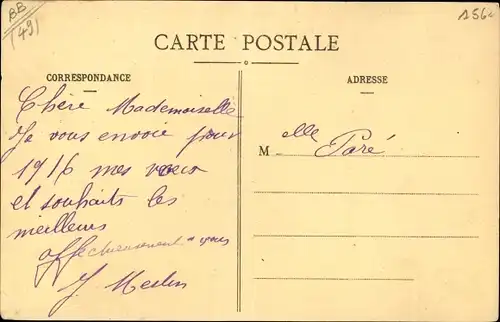 BB
(49)
156
CARTE POSTALE
CORRESPONDANCE
Chère Mademoiselle
Je vous envoie pour
1916 mes vœux
et souhaits les
meilleurs
affectueusement à vous
J Meslin
ADRESSE
Melle Paré